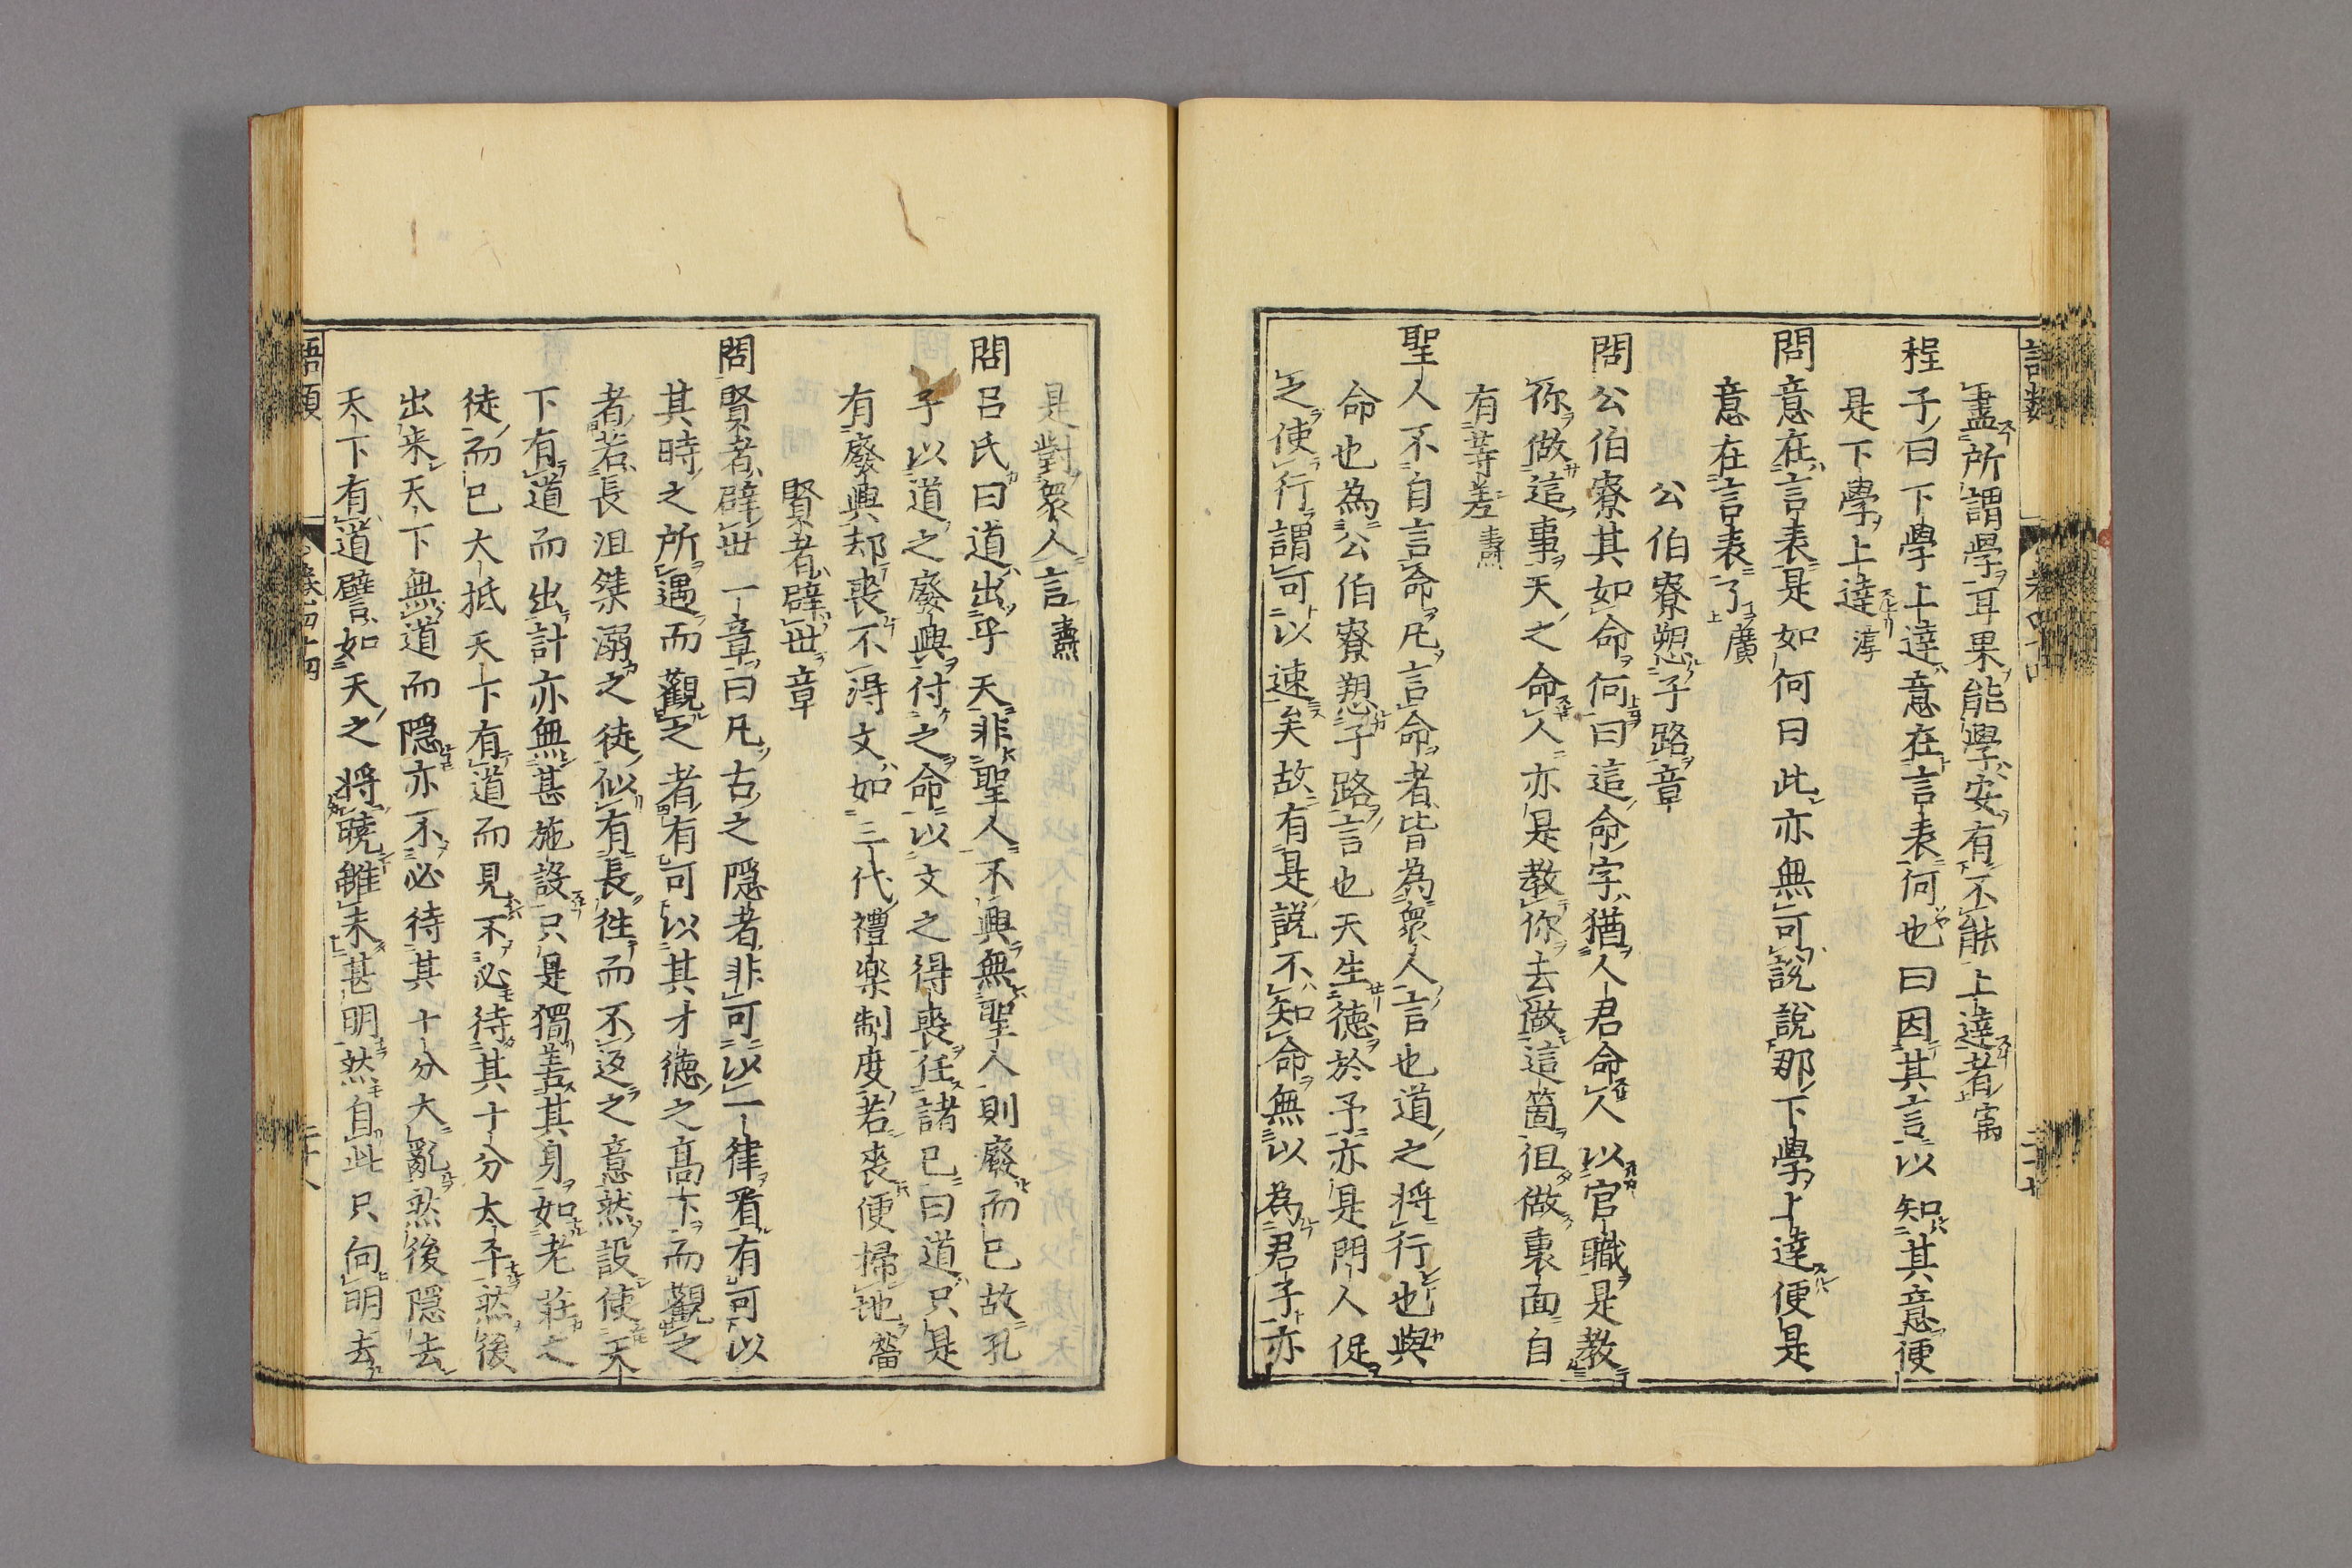 盡所謂學耳果能學安有不能上達者㝢
程子曰下學上達意在言表何也曰因其言以知其意便
是下學上達淳
問意在言表是如何曰此亦無可說說那下學上達便是
意在言表了廣
公伯寮愬子路章
問公伯寮其如命何曰這命字猶人君命人以官職是教
你做這事天之命人亦是教你去做這箇但做裏面自
有等差燾
聖人不自言命凡言命者皆為衆人言也道之将行也與
命也為公伯寮愬子路言也天生徳於予亦是門人促
之使行謂可以速矣故有是說不知命無以為君子亦
是對衆人言燾
問呂氏曰道出乎天非聖人不興無聖人則廢而已故孔
子以道之廢興付之命以文之得喪任諸已曰道只是
有廢興却喪不得文如三代禮楽制度若喪便掃地㽦
賢者辟世章
問賢者辟世一章曰凡古之隠者非可以一律看有可以
其時之所遇而觀之者有可以其才徳之高下而觀之
者若長沮桀溺之徒似有長徃而不返之意然設使天
下有道而出計亦無甚施設只是獨善其身如老莊之
徒而已大抵天下有道而見不必待其十分太平然後
出来天下無道而隠亦不必待其十分大亂然後隠去
天下有道譬如天之将曉雖未甚明然自此只向明去
語類
卷四十四